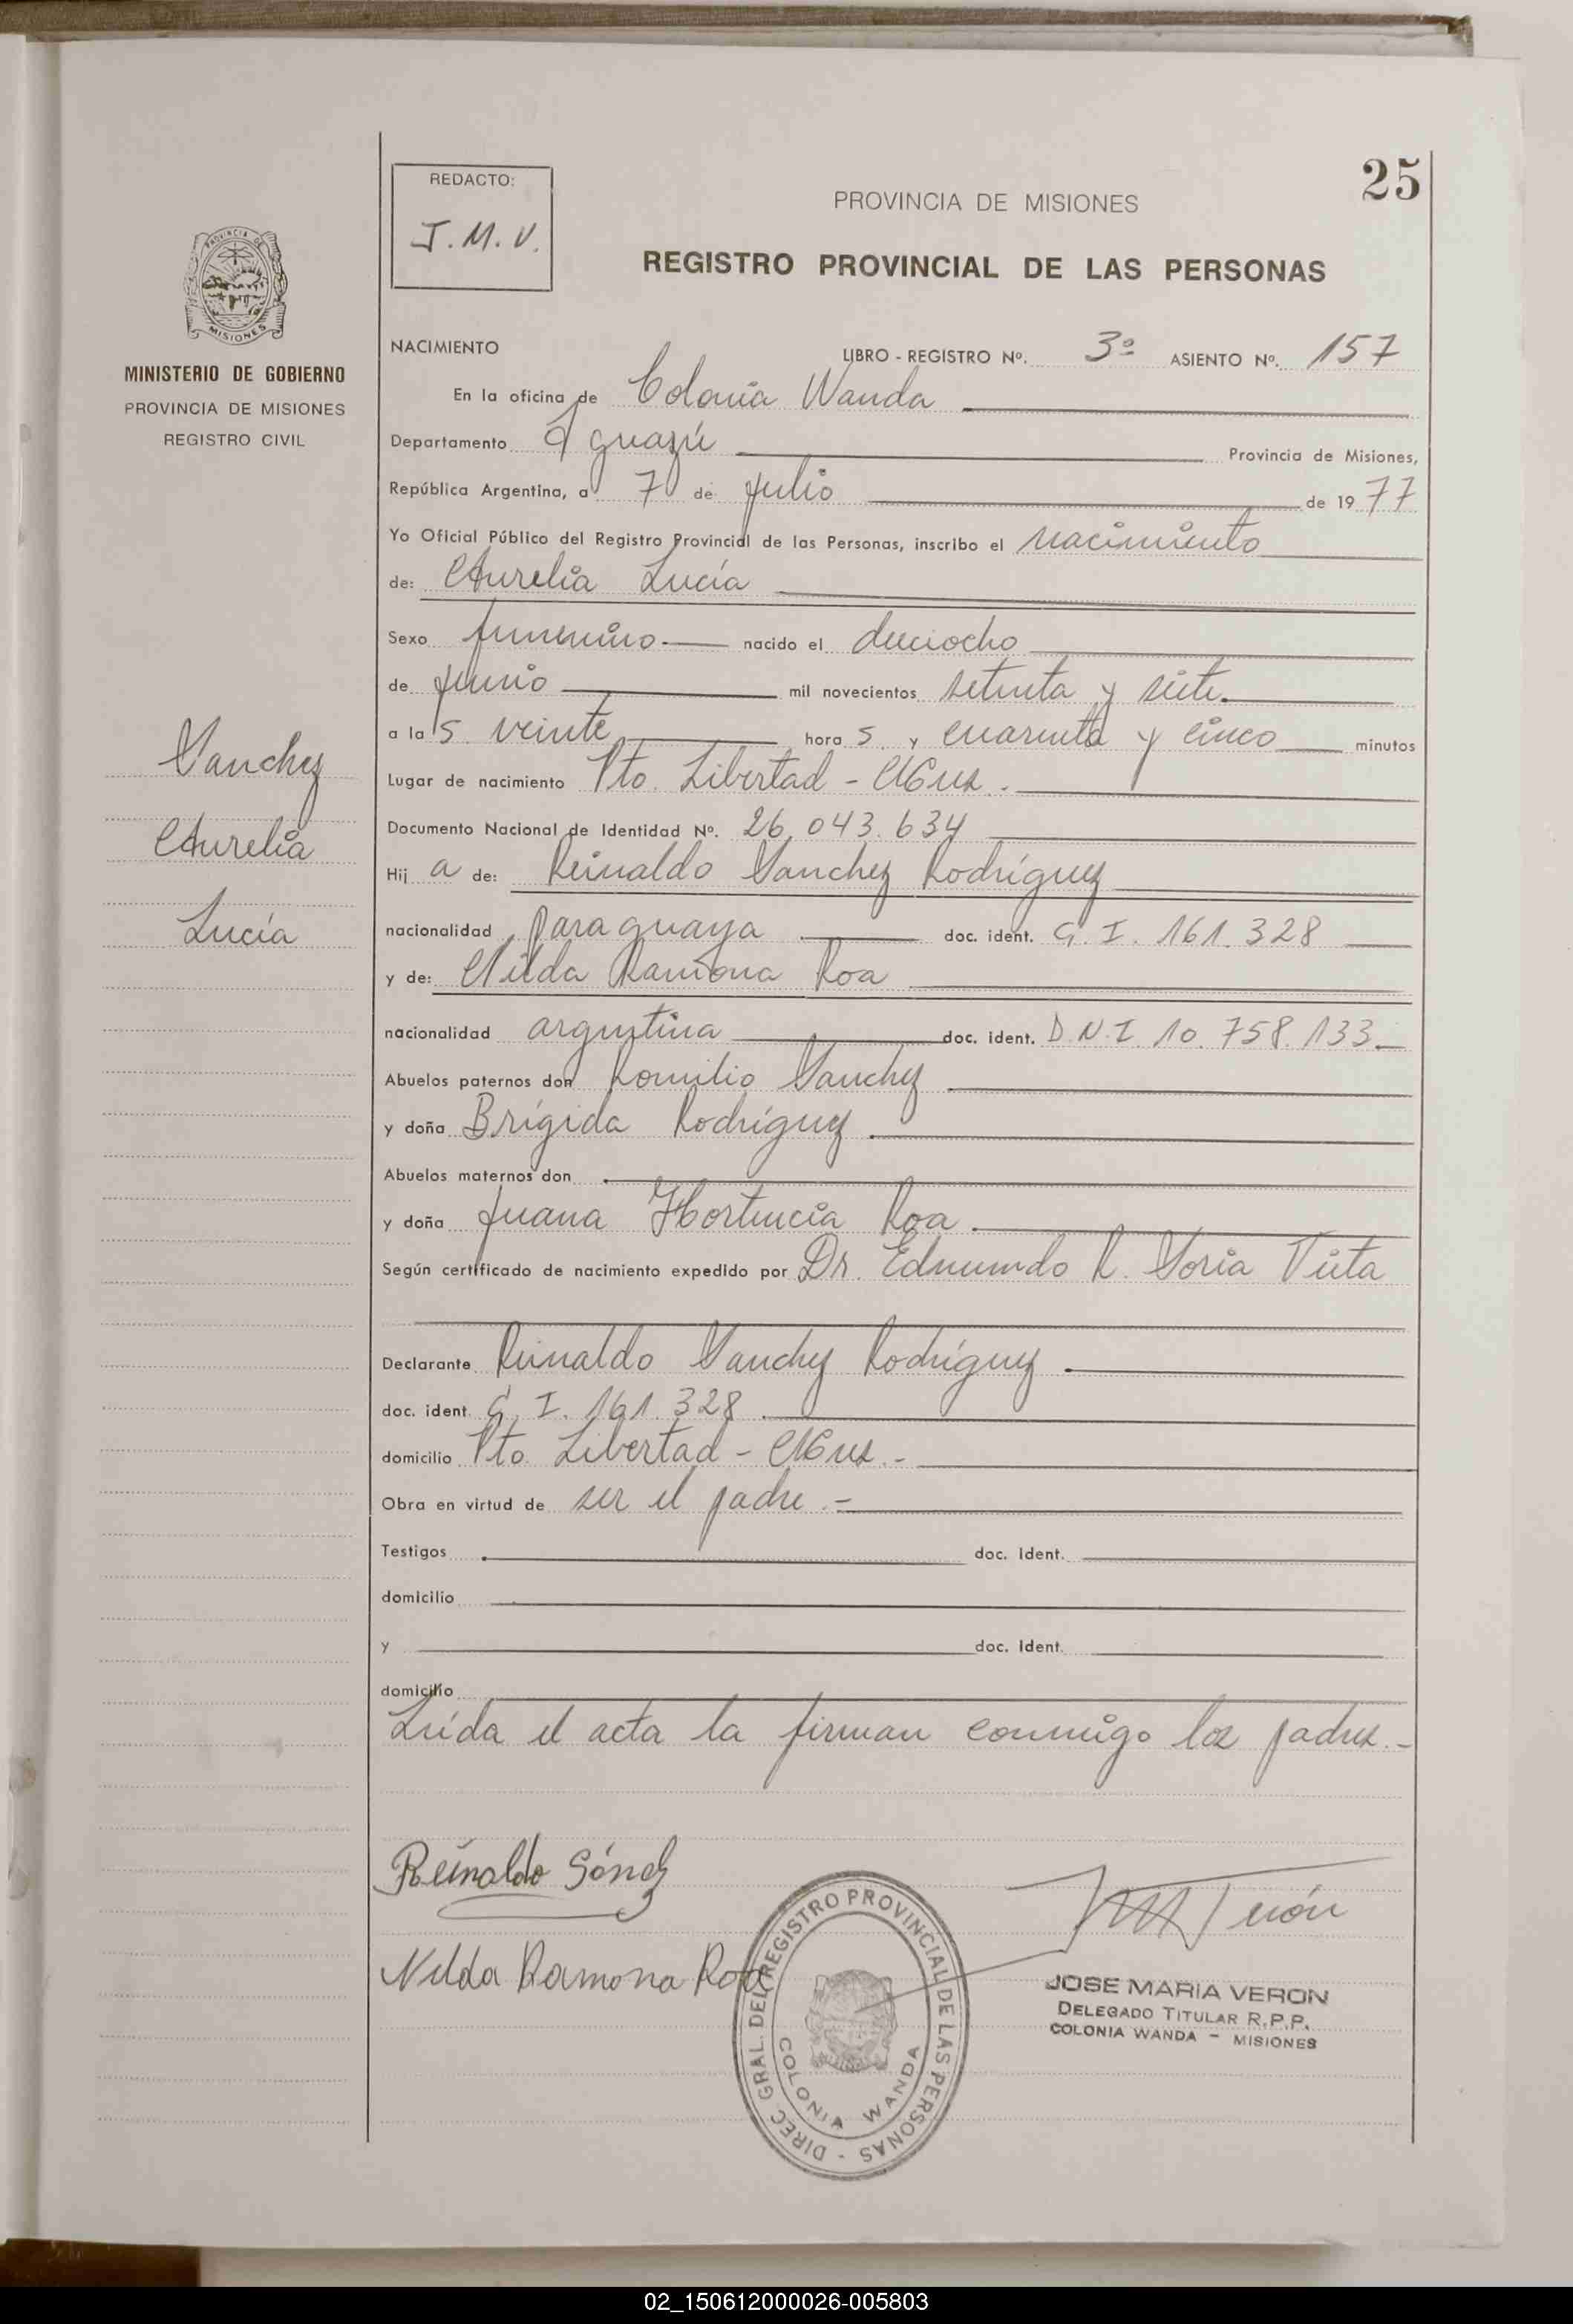 25
REDACTO:
J. M. V.
PROVINCIA DE MISIONES
REGISTRO PROVINCIAL DE LAS PERSONAS
PROVINCIA DE
MISIONES
MINISTERIO DE GOBIERNO
PROVINCIA DE MISIONES
REGISTRO CIVIL
Sanchez
Aurelia
Lucía
NACIMIENTO LIBRO - REGISTRO Nº. 3º ASIENTO Nº. 157
En la oficina de Colonia Wanda
Departamento Iguazú Provincia de Misiones,
República Argentina, a 7 de julio de 1977
Yo Oficial Público del Registro Provincial de las Personas, inscribo el nacimiento
de: Aurelia Lucía
Sexo femenino nacido el dieciocho
de junio mil novecientos setenta y siete.
a las veinte horas y cuarenta y cinco minutos
Lugar de nacimiento Pto. Libertad - Mnes.
Documento Nacional de Identidad Nº. 26.043.634
Hija de: Reinaldo Sanchez Rodríguez
nacionalidad paraguaya doc. ident. C. I. 161.328
y de: Nilda Ramona Roa
nacionalidad argentina doc. ident. D.N.I. 10.758.133.
Abuelos paternos don Romilio Sanchez
y doña Brígida Rodríguez
Abuelos maternos don
y doña Juana Hortencia Roa.
Según certificado de nacimiento expedido por Dr. Edmundo R. Soria Vieta
Declarante Reinaldo Sanchez Rodríguez
doc. ident. C. I. 161.328
domicilio Pto. Libertad - Mnes.-
Obra en virtud de ser el padre.-
Testigos doc. ident.
domicilio
y doc. ident.
domicilio
Leída el acta la firman conmigo los padres.-
Reinaldo Sánchez
Nilda Ramona Roa
DIREC. GRAL. DEL REGISTRO PROVINCIAL DE LAS PERSONAS -
COLONIA WANDA
JOSE MARIA VERON
DELEGADO TITULAR R.P.P.
COLONIA WANDA - MISIONES
02_150612000026-005803